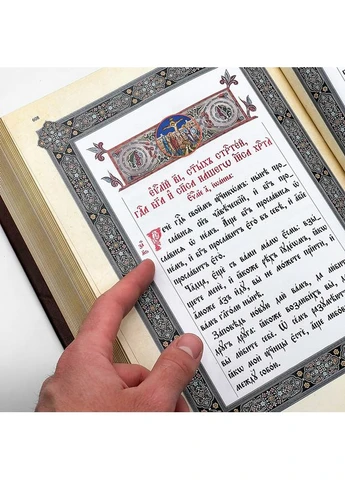 Є҆ѵⷢ҇лїа в҃і, ст҃ы́хъ стрⷭ҇те́й,
гдⷭ҇а бг҃а и҆ сп҃са на́шегѡ і҆и҃са хрⷭ҇та̀
Є҆ѵⷢ҇лїе а҃, і҆ѡа́нна:
Речѐ гдⷭ҇ь свои̑мъ ᲂу҆чн҃кѡ́мъ: ны́нѣ про-
сла́висѧ сн҃ъ чл҃вѣ́ческїй, и҆ бг҃ъ про-
сла́висѧ ѡ҆ не́мъ. А҆́ще бг҃ъ просла́висѧ ѡ҆
не́мъ, и҆ бг҃ъ просла́витъ є҆го̀ въ себѣ̀, и҆ а҆́бїе
просла́витъ є҆го̀.
Ча̑дца, є҆щѐ съ ва́ми ма́лѡ є҆́смь: взы́-
щете менѐ, и҆ ꙗ҆́коже рѣ́хъ і҆ꙋде́ѡмъ, ꙗ҆́кѡ
а҆́може а҆́зъ и҆дꙋ̀, вы̀ не мо́жете прїитѝ, и҆
ва́мъ гл҃ю ны́нѣ.
За́повѣдь но́вꙋю даю̀ ва́мъ, да лю́бите
дрꙋ́гъ дрꙋ́га: ꙗ҆́коже возлюби́хъ вы̀, да и҆
вы̀ лю́бите себѐ. Ѡ҆ се́мъ разꙋмѣ́ютъ всѝ,
ꙗ҆́кѡ моѝ ᲂу҆чн҃цы̀ є҆стѐ, а҆́ще любо́вь
междꙋ̀ собо́ю.